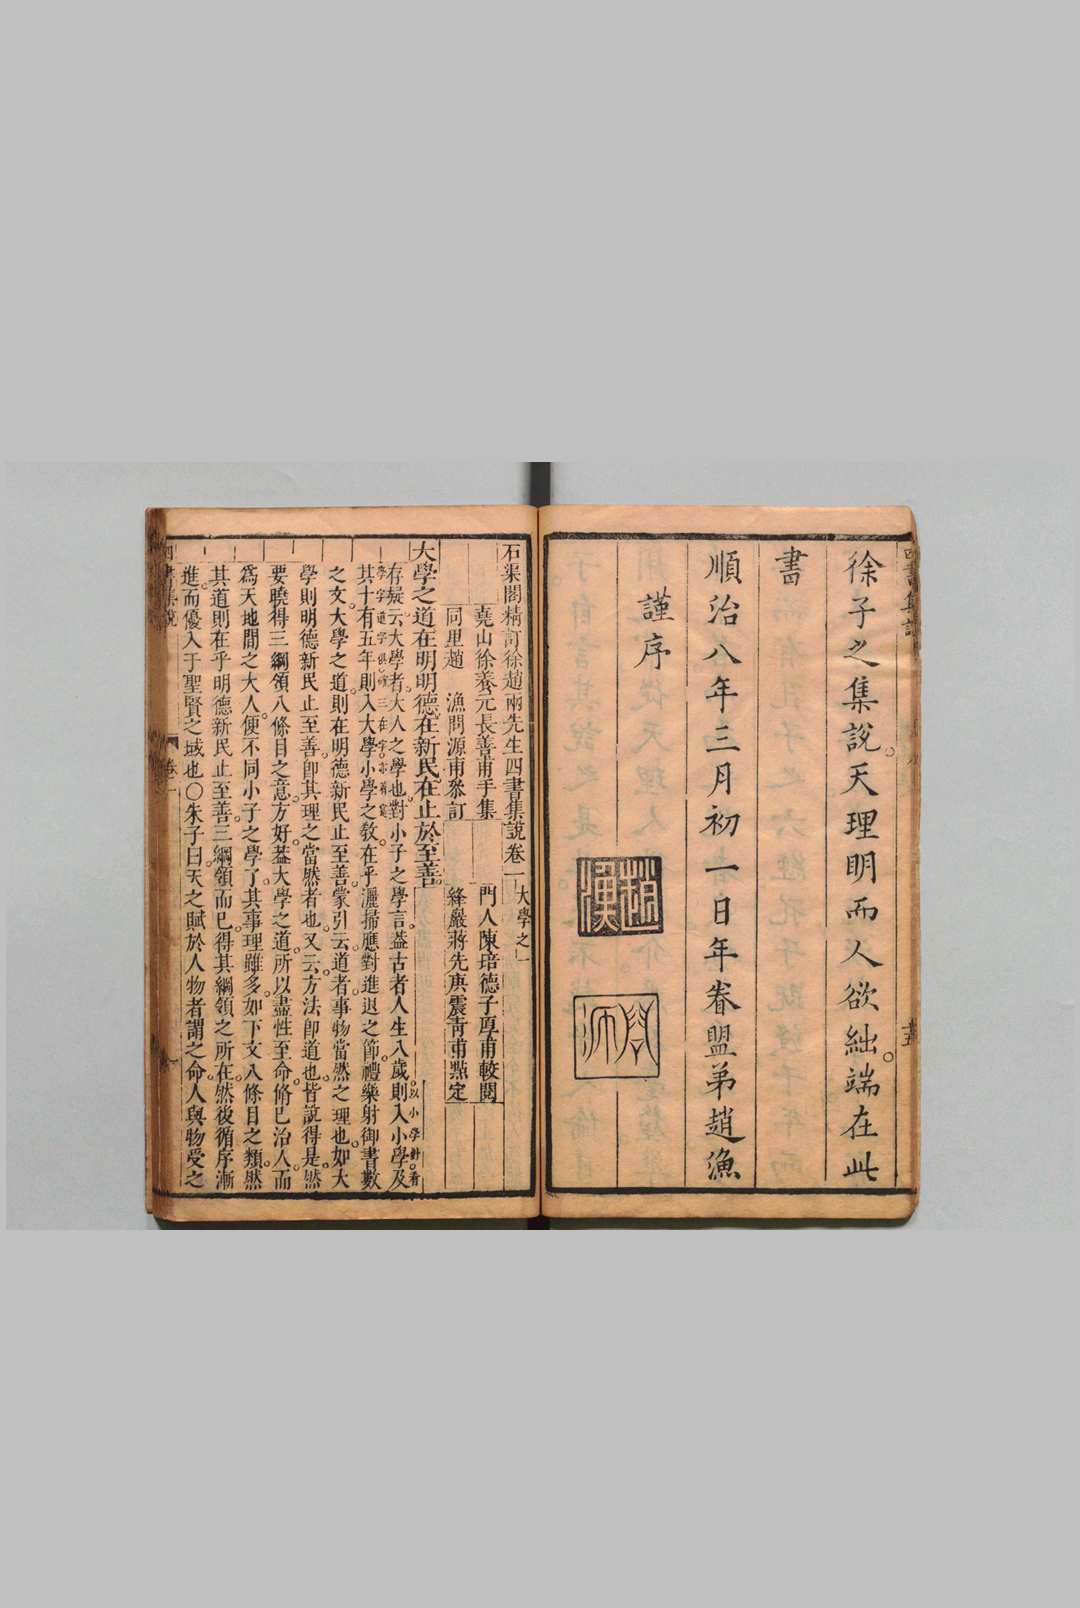 徐子之集說天理明而人欲絀端在此
書
順治八年三月初一日年眷盟弟趙漁
謹序
趙漁
石渠閣精訂徐趙兩先生四書集說卷一 大學之一
堯山徐養元長善甫手集 門人陳培德子厚甫較閱
同里趙 漁問源甫參訂 絳嚴蔣先庚震青甫點定
大學之道在明明德在新民在止於至善
以小學對看
存疑云大學者大人之學也對小子之學言葢古者人生八歲則入小學及
其十有五年則入大學小學之教在乎灑掃應對進退之節禮樂射御書數
之文大學之道則在明德新民止至善蒙引云道者事物當然之理也如大
學則明德新民止至善卽其理之當然者也又云方法卽道也皆說得是然
要曉得三綱領八條目之意方好葢大學之道所以盡性至命脩已治人而
爲天地間之大人便不同小子之學了其事理雖多如下文八條目之類然
其道則在乎明德新民止至善三綱領而已得其綱領之所在然後循序漸
進而優入于聖賢之域也○朱子曰天之賦於人物者謂之命人與物受之
四書集說 卷一 一